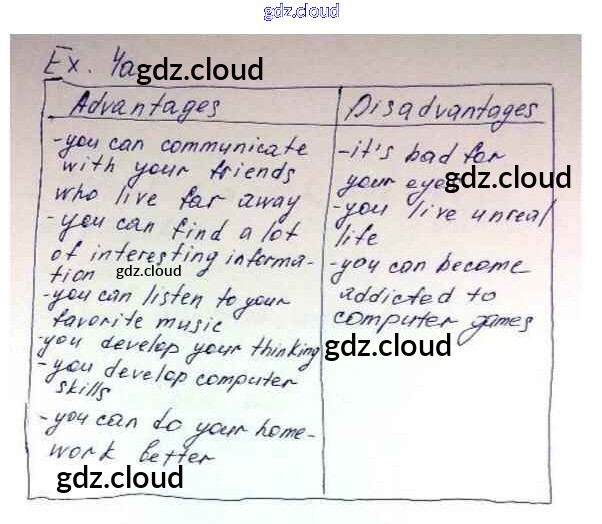 gdz.cloud
Ex. 4a
gdz.cloud
Advantages
-you can communicate
with your friends
who live far away
-you can find a lot
of interesting informa-
tion
gdz.cloud
-you can listen to your
favorite music
-you develop your thinking
-you develop computer
skills
-you can do your home-
work better
gdz.cloud
Disadvantages
-it's bad for
your eyes
gdz.cloud
-you live unreal
life
-you can become
addicted to
computer games
gdz.cloud